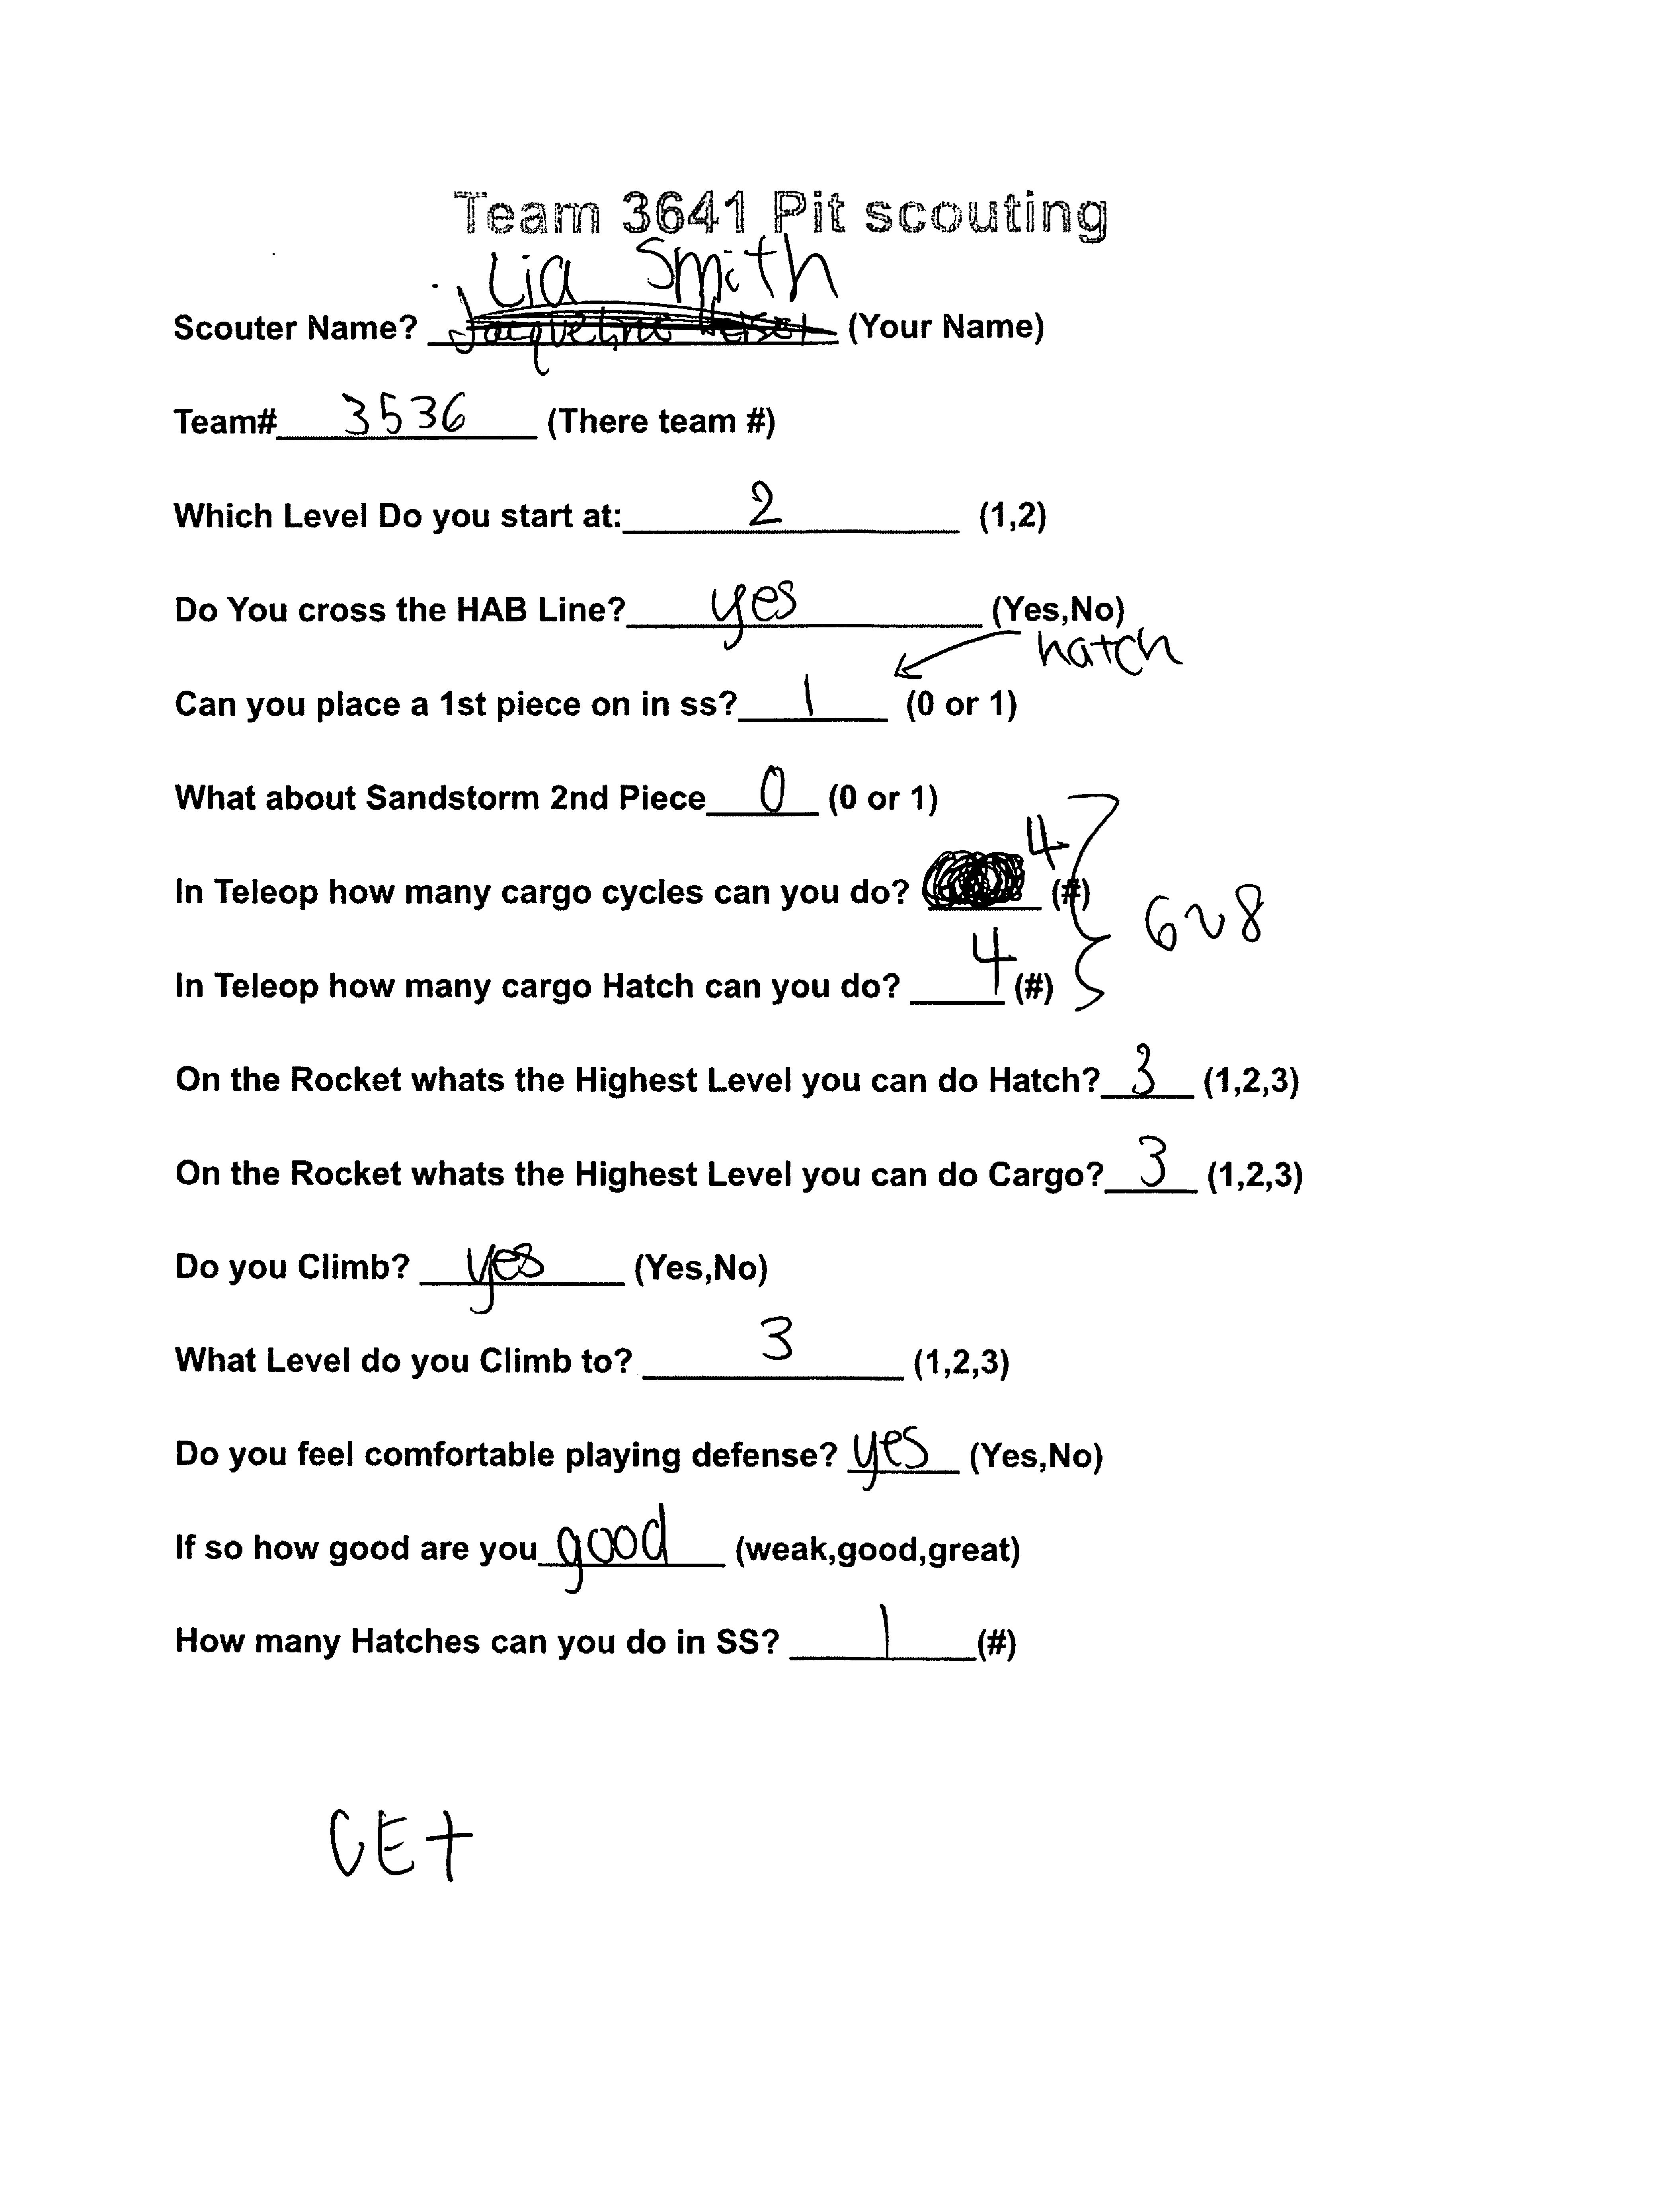 Team 3641 Pit scouting
Lia Smith
Scouter Name? (Your Name)
Team# 3536 (There team #)
Which Level Do you start at: 2 (1,2)
Do You cross the HAB Line? yes (Yes,No)
hatch
Can you place a 1st piece on in ss? 1 (0 or 1)
What about Sandstorm 2nd Piece 0 (0 or 1)
In Teleop how many cargo cycles can you do? 4 (#)
6~8
In Teleop how many cargo Hatch can you do? 4 (#)
On the Rocket whats the Highest Level you can do Hatch? 3 (1,2,3)
On the Rocket whats the Highest Level you can do Cargo? 3 (1,2,3)
Do you Climb? yes (Yes,No)
What Level do you Climb to? 3 (1,2,3)
Do you feel comfortable playing defense? yes (Yes,No)
If so how good are you good (weak,good,great)
How many Hatches can you do in SS? 1 (#)